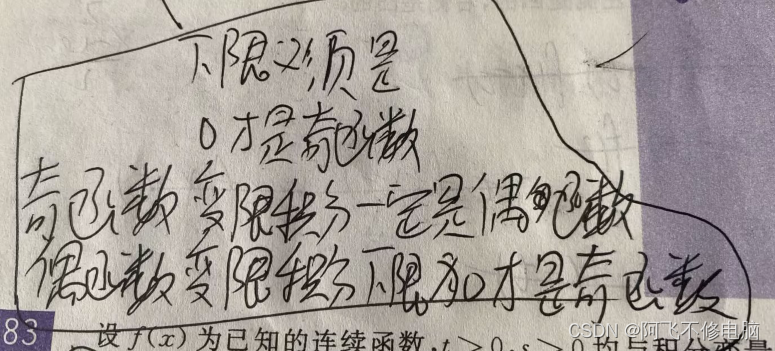 下限必须是
0才是奇函数
奇函数变限积分一定是偶函数
偶函数变限积分下限为0才是奇函数
83 设f(x)为已知的连续函数,t>0,s>0均与积分变量
CSDN @阿飞不修电脑